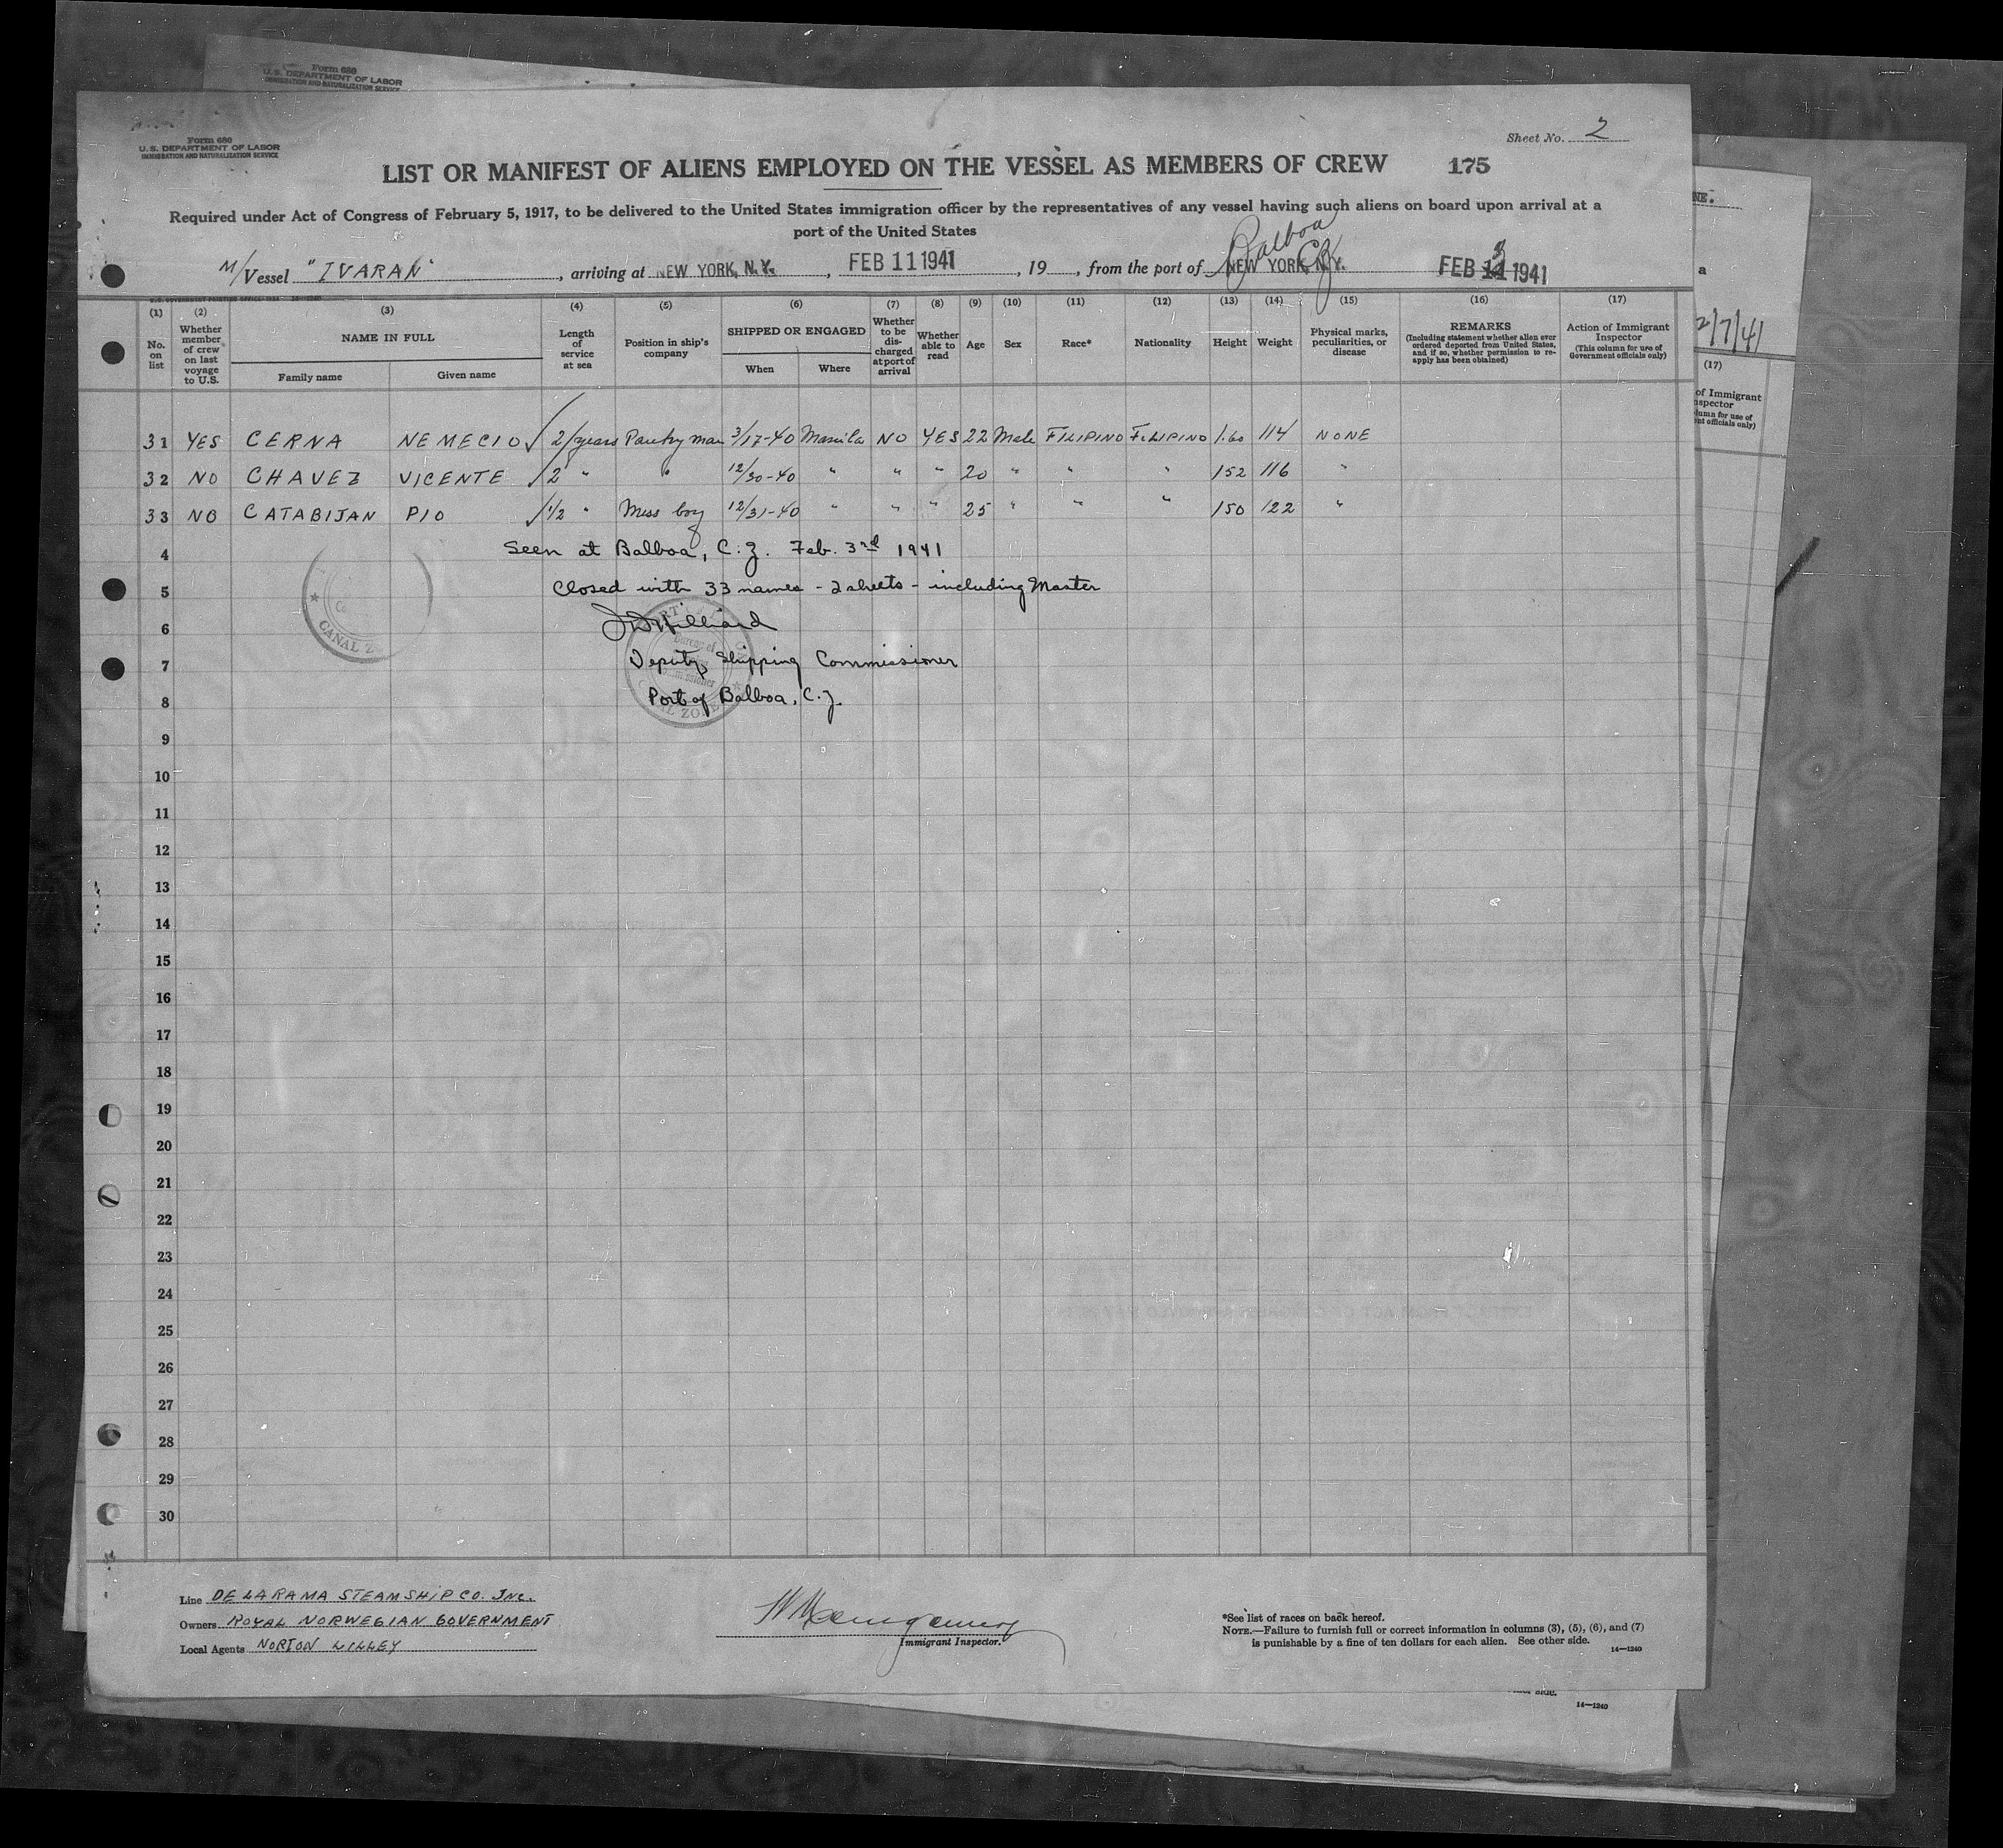 Form 680
U.S. DEPARTMENT OF LABOR
IMMIGRATION AND NATURALIZATION SERVICE
Form 680
U.S. DEPARTMENT OF LABOR
IMMIGRATION AND NATURALIZATION SERVICE
Sheet No. 2
LIST OR MANIFEST OF ALIENS EMPLOYED ON THE VESSEL AS MEMBERS OF CREW 175
Required under Act of Congress of February 5, 1917, to be delivered to the United States immigration officer by the representatives of any vessel having such aliens on board upon arrival at a
port of the United States
Balboa
CZ
M/Vessel "IVARAN", arriving at NEW YORK, N.Y., FEB 11 1941, 19, from the port of NEW YORK, N.Y. FEB 3 11 1941
(1) (2) (3) (4) (5) (6) (7) (8) (9) (10) (11) (12) (13) (14) (15) (16) (17)
No. on list
Whether member of crew on last voyage to U.S.
NAME IN FULL
Family name
Given name
Length of service at sea
Position in ship's company
SHIPPED OR ENGAGED
When
Where
Whether to be discharged at port of arrival
Whether able to read
Age
Sex
Race*
Nationality
Height
Weight
Physical marks, peculiarities, or disease
REMARKS
(Including statement whether alien ever ordered deported from United States, and if so, whether permission to reapply has been obtained)
Action of Immigrant Inspector
(This column for use of Government officials only)
31 YES CERNA NEMECIO 2/years Pantry man 3/17-40 Manila NO YES 22 Male FILIPINO FILIPINO 1.60 114 NONE
32 NO CHAVEZ VICENTE 2 " " 12/30-40 " " " 20 " " " 152 116 "
33 NO CATABIJAN PIO 1/2 " Mess boy 12/31-40 " " " 25 " " " 150 122 "
4 Seen at Balboa, C.Z. Feb. 3rd 1941
5 Closed with 33 names - 2 sheets - including Master
6 Hilliard
7 Deputy Shipping Commissioner
8 Port of Balboa, C.Z.
CANAL Z
9
10
11
12
13
14
15
16
17
18
19
20
21
22
23
24
25
26
27
28
29
30
Line DE LA RAMA STEAMSHIP CO. INC.
Owners ROYAL NORWEGIAN GOVERNMENT
Local Agents NORTON LILLEY
Immigrant Inspector.
*See list of races on back hereof.
NOTE.—Failure to furnish full or correct information in columns (3), (5), (6), and (7)
is punishable by a fine of ten dollars for each alien. See other side.
14—1240
NE.
a
2/7/41
(17)
of Immigrant
14—1240